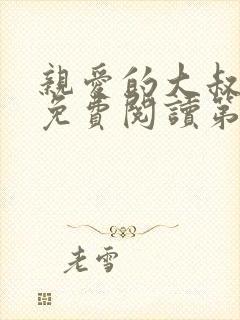 親愛的大叔
免費閱讀第
老雪